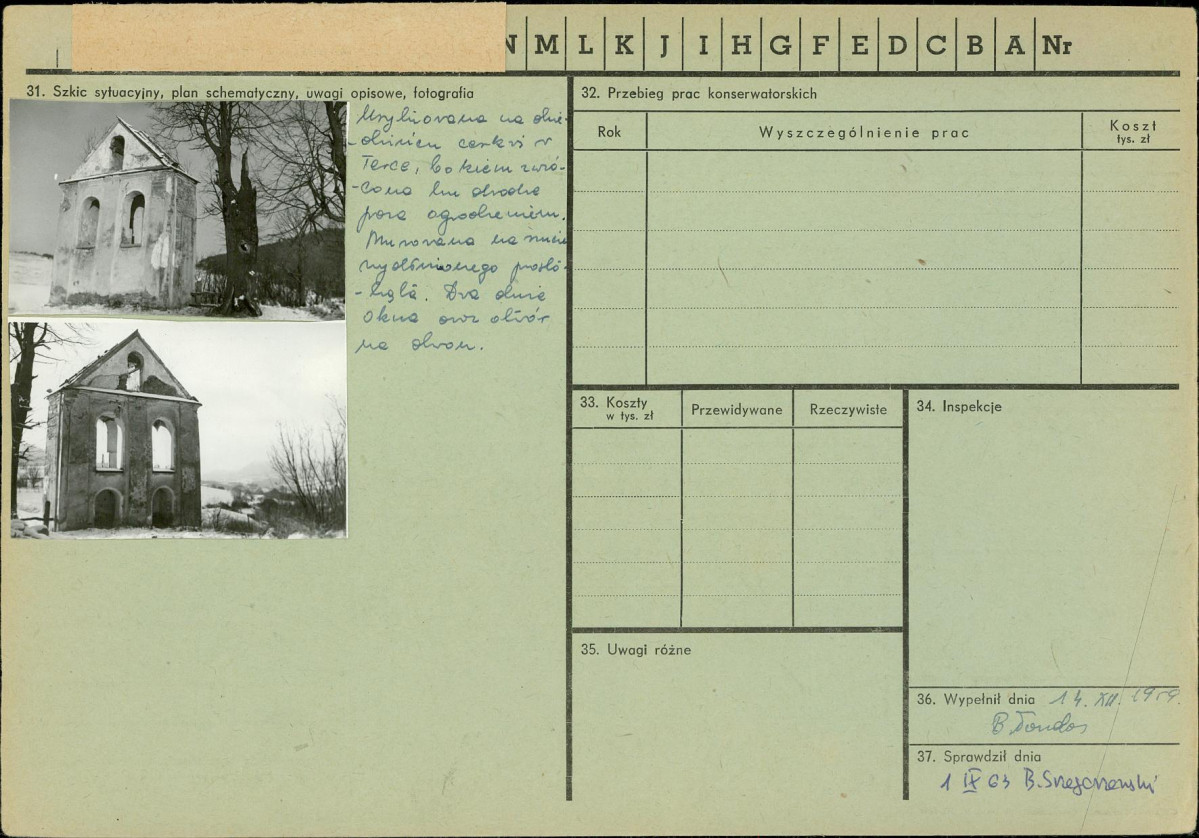 N M L K J I H G F E D C B A Nr
31. Szkic sytuacyjny, plan schematyczny, uwagi opisowe, fotografia
Usytuowana na dzie-
-dzińcu cerkwi w
Terce, bokiem zwró-
-cona ku drodze
poza ogrodzeniem.
Murowana na rzucie
wydłużonego prostó-
-kąta. Dwa duże
okna oraz otwór
na dzwon.
32. Przebieg prac konserwatorskich
Rok Wyszczególnienie prac Koszt
tys. zł
33. Koszty
w tys. zł Przewidywane Rzeczywiste
34. Inspekcje
35. Uwagi różne
36. Wypełnił dnia 14. XII. 1959.
B. Tondos
37. Sprawdził dnia
1 IX 63 B.